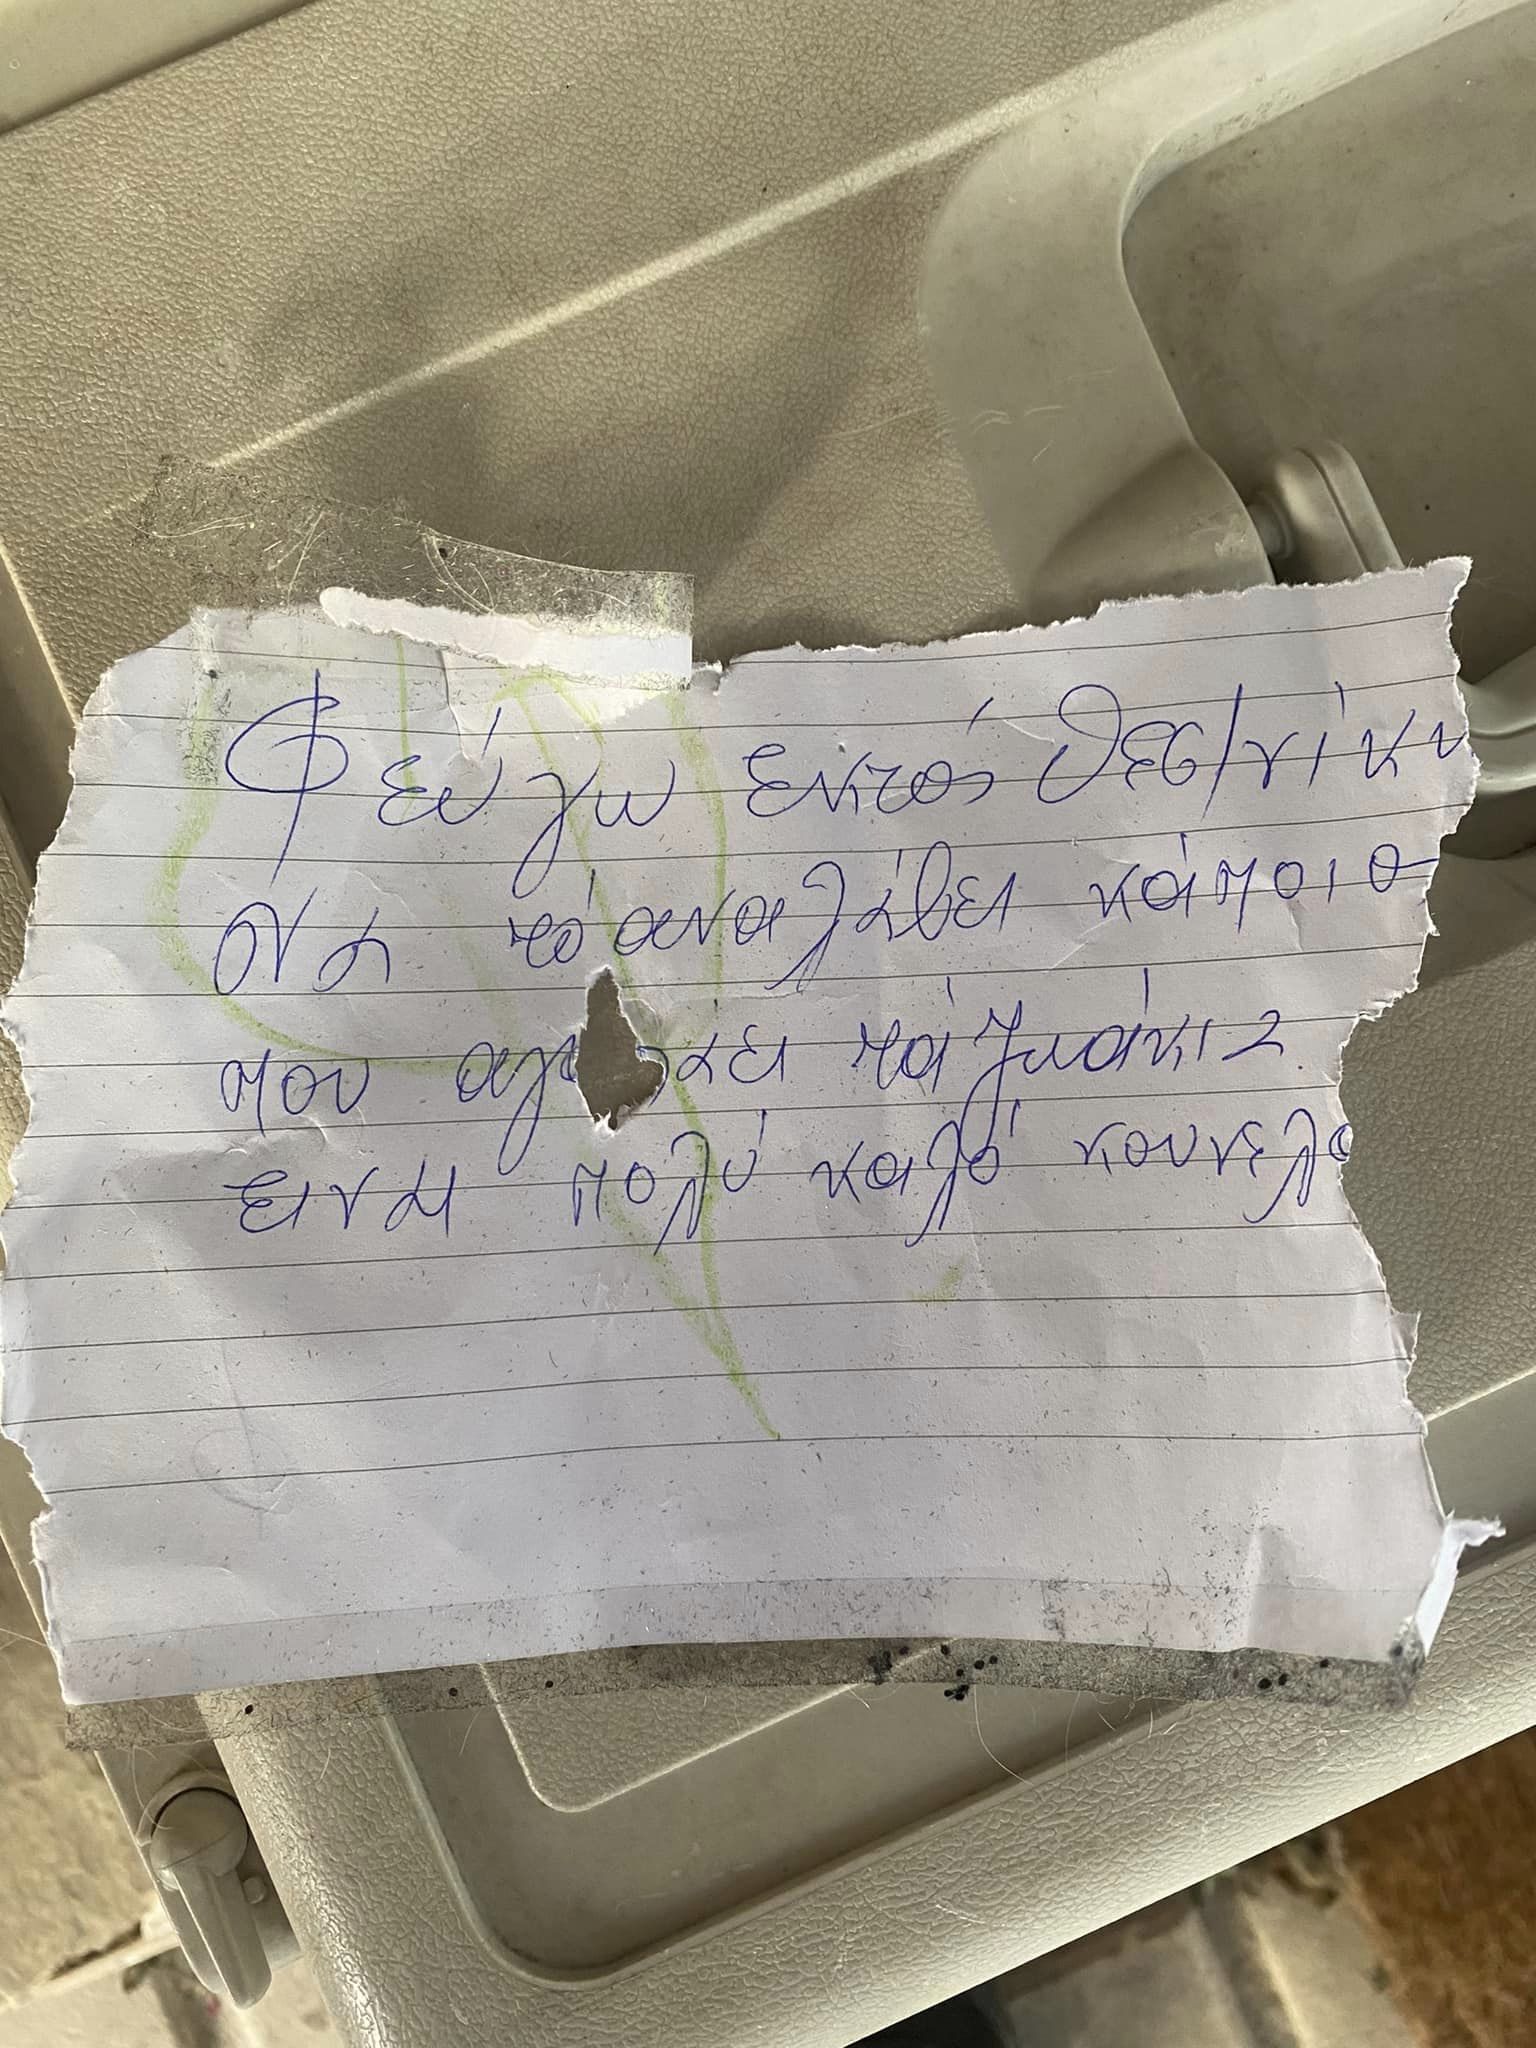 Φεύγω εντός Θεσ/νίκη
Να τό αναλάβει κάποιο
που αγ απάει τά ζωάκια
ειναι πολύ καλό κουνελά